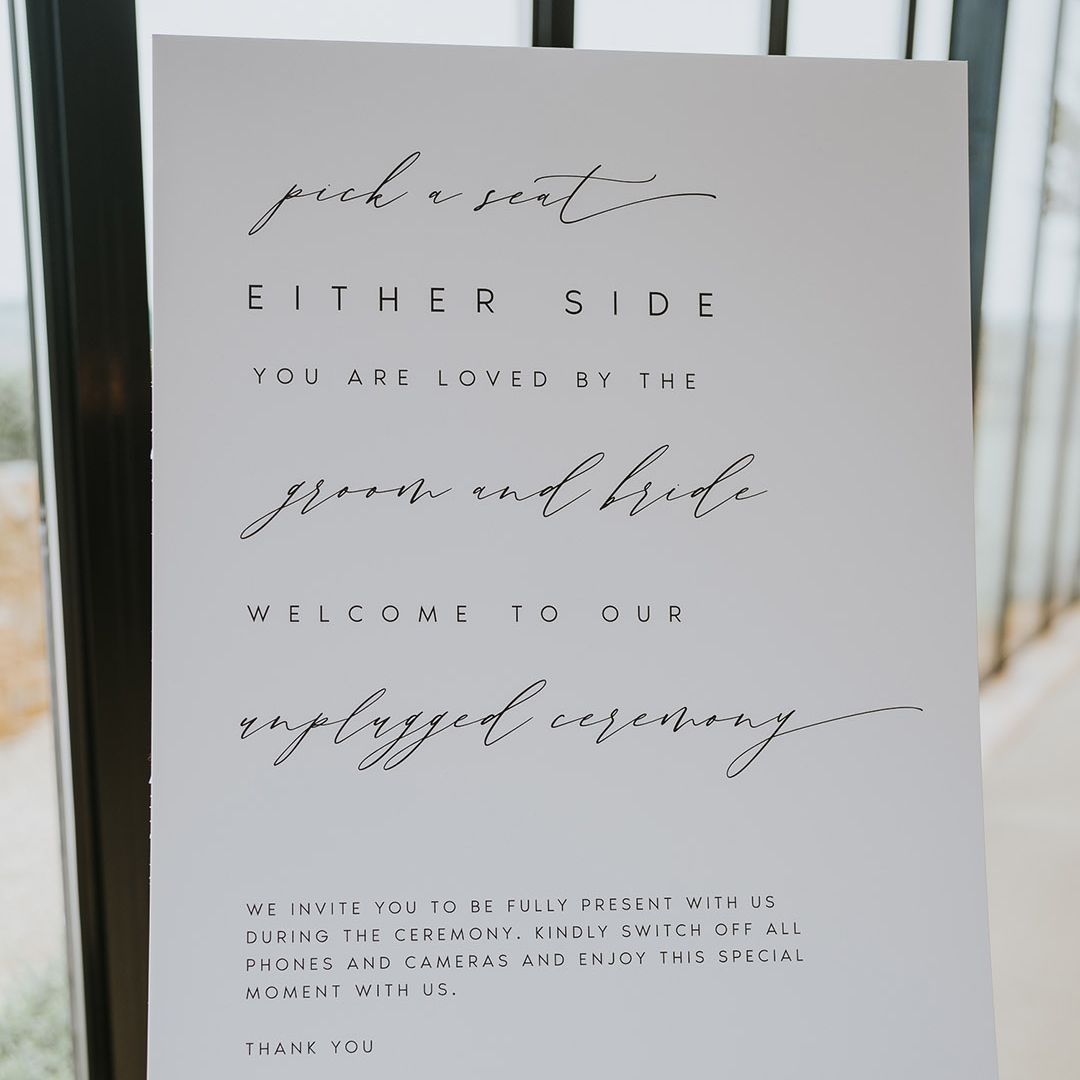 pick a seat
EITHER SIDE
YOU ARE LOVED BY THE
groom and bride
WELCOME TO OUR
unplugged ceremony
WE INVITE YOU TO BE FULLY PRESENT WITH US
DURING THE CEREMONY. KINDLY SWITCH OFF ALL
PHONES AND CAMERAS AND ENJOY THIS SPECIAL
MOMENT WITH US.
THANK YOU